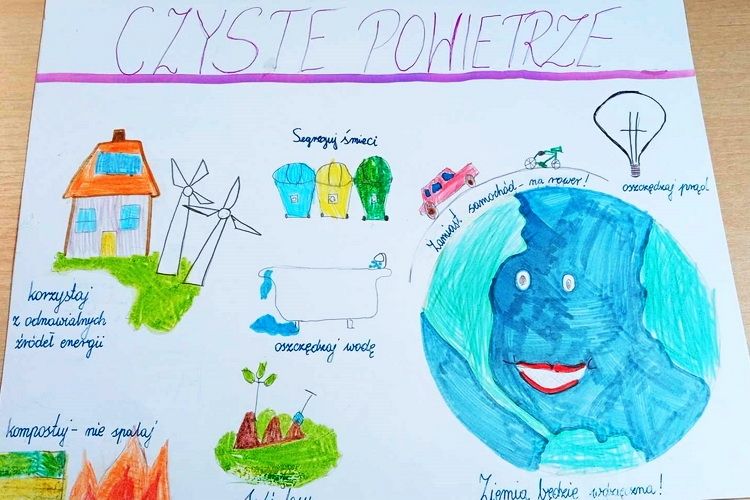 CZYSTE POWIETRZE
Segreguj śmieci
Zamiast samochód - na rower!
oszczędzaj prąd
korzystaj
z odnawialnych
źródeł energii
oszczędzaj wodę
kompostuj - nie spalaj
Ziemia będzie wdzięczna!